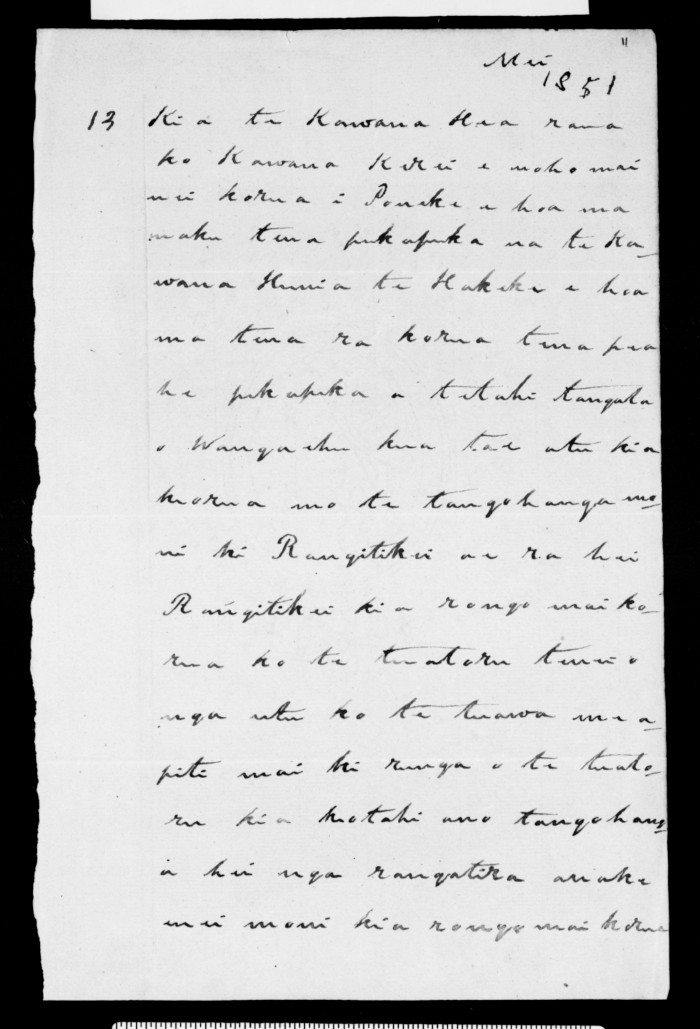 11
Mei
1851
13 Kia te Kawana Hea raua
ko Kawana Kerei e noho mai
nei korua i Poneke e hoa ma
maku tena pukapuka na te Ka-
wana Hunia te Hakeke e hoa
ma tena ra korua tena pea
he pukapuka a tetahi tangata
o Wangaehu kua tae atu kia
korua mo te tangohanga mo-
ni ki Rangitikei ae ra hei
Rangitikei kia rongo mai ko-
rua ko te tuatoru tenei o
nga utu ko te tuawa me a-
piti mai ki runga o te tuato-
ru kia kotahi ano tangohang-
a hei nga rangatira anake
enei moni kia rongo mai korua